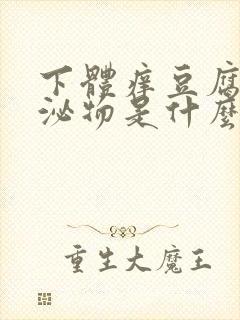 下體痒豆腐
泌物是什麼
重生大魔王